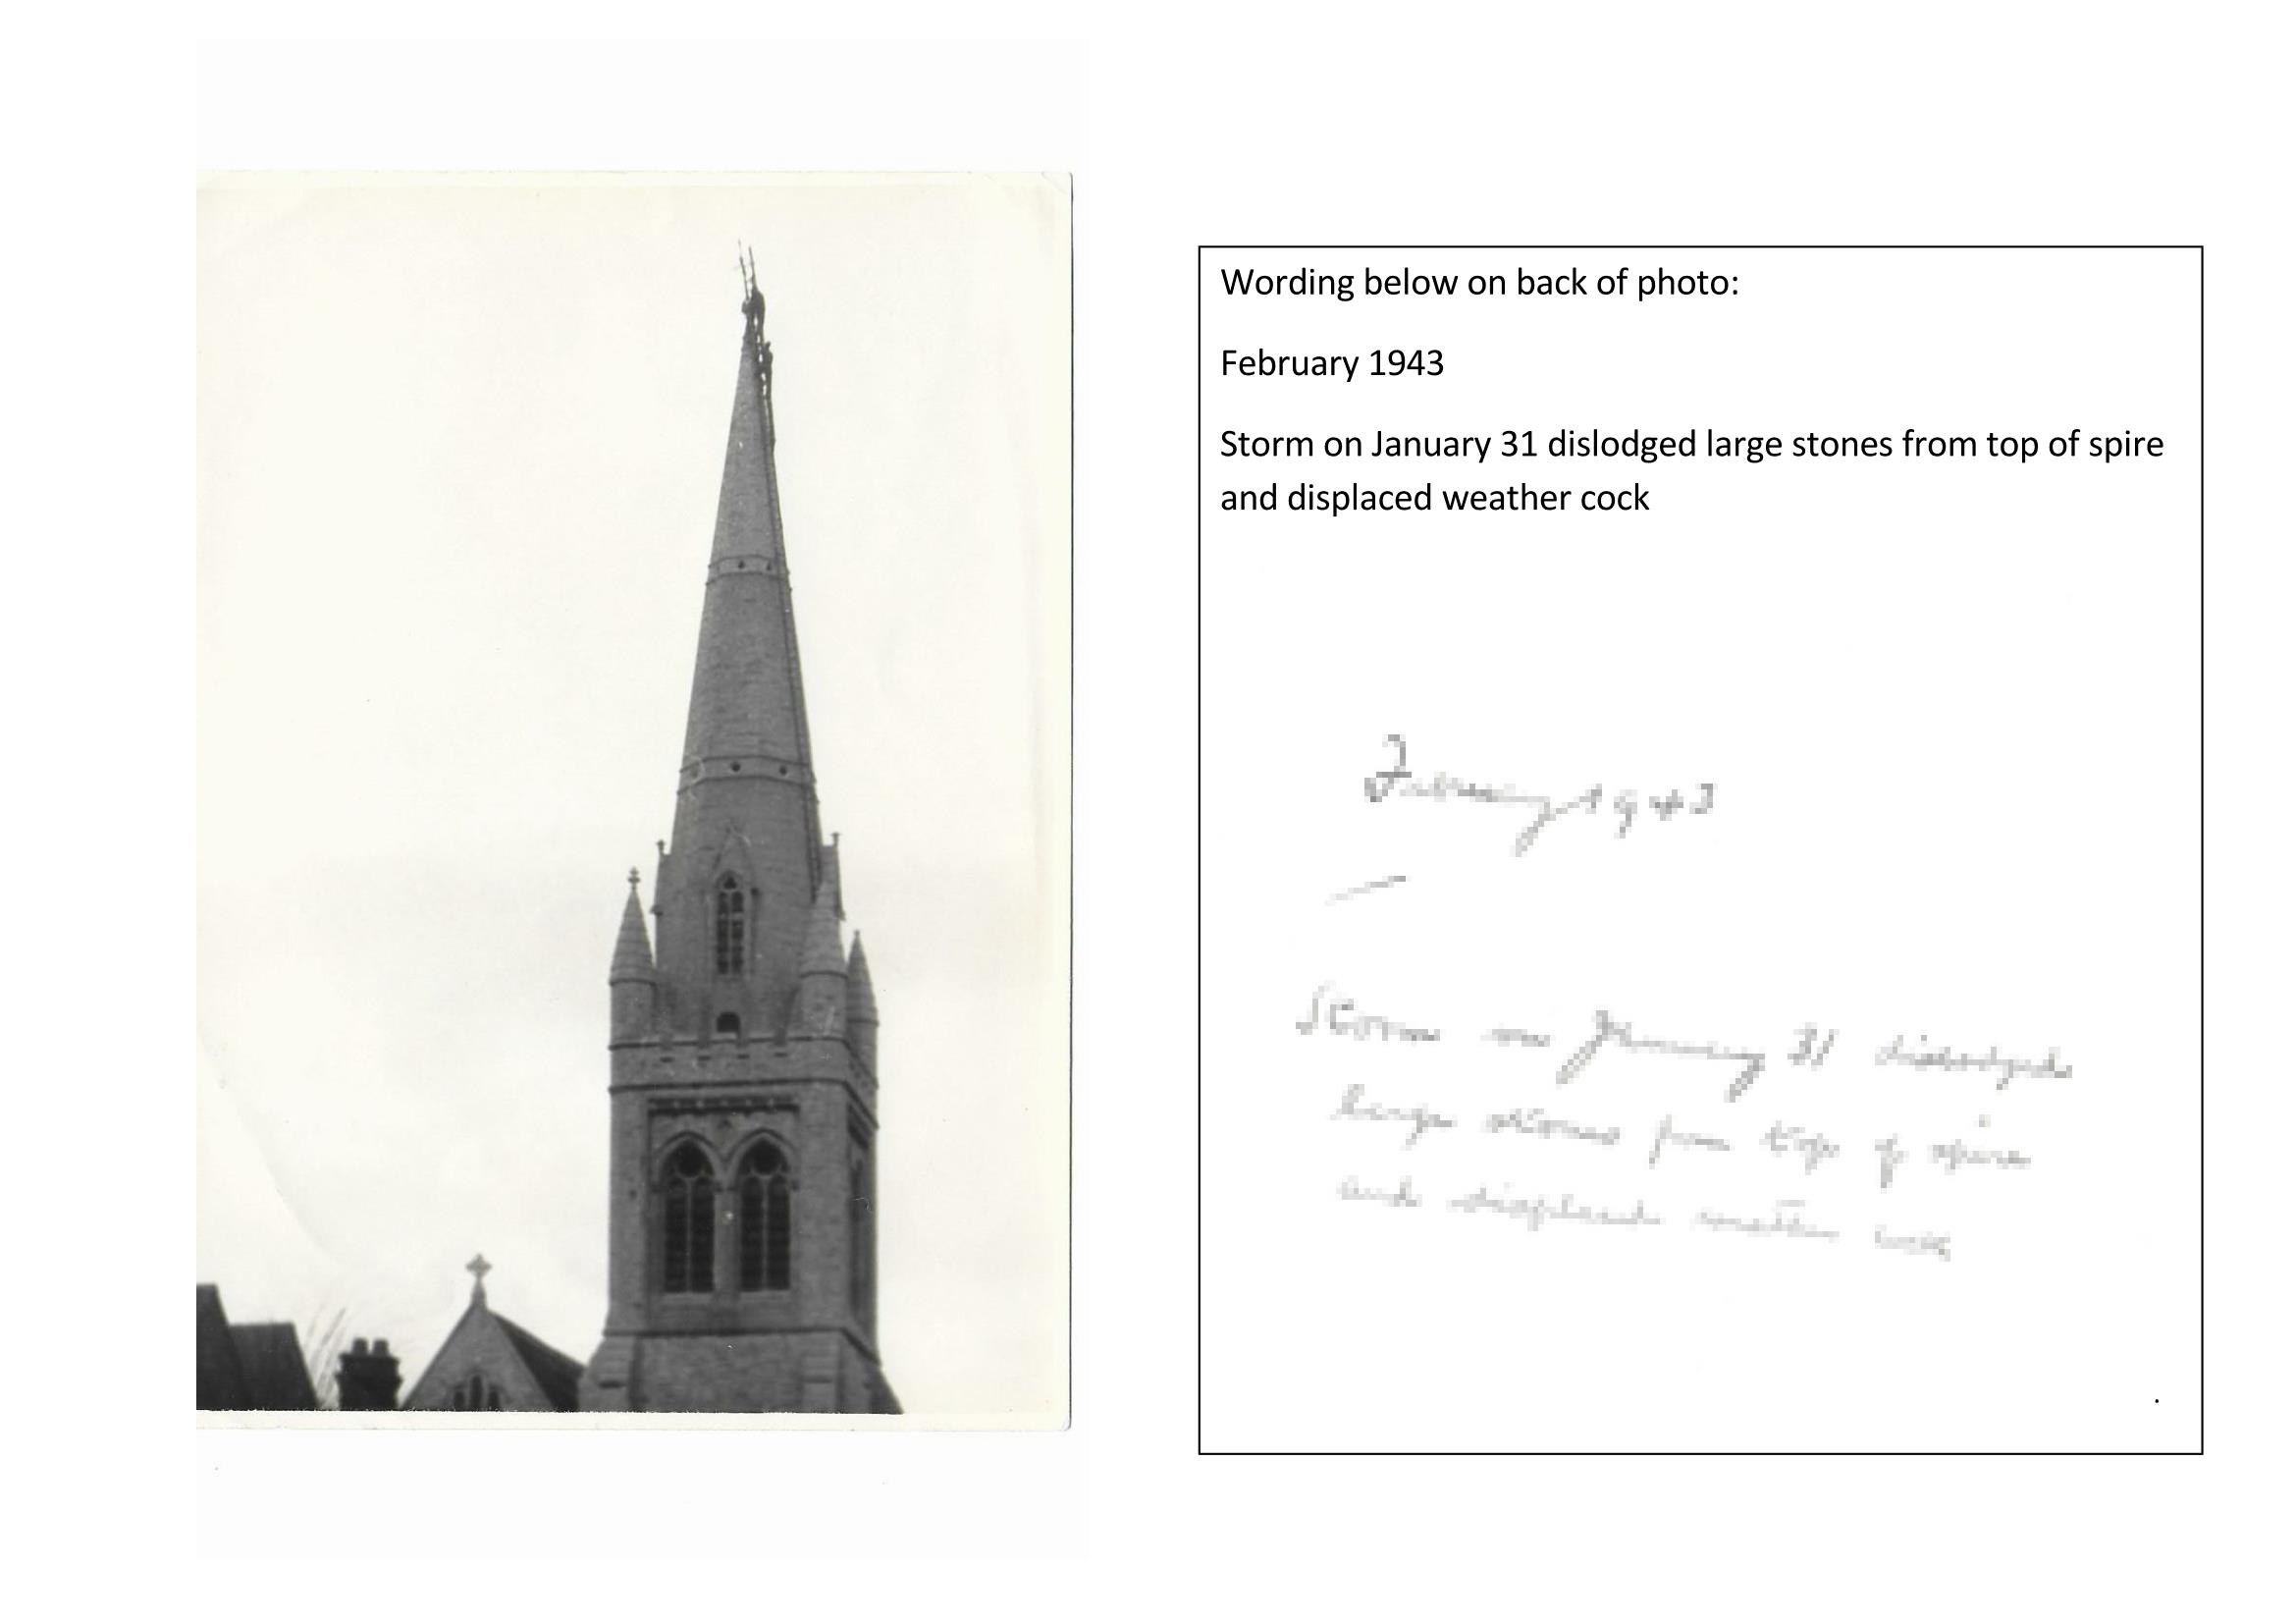 Wording below on back of photo:
February 1943
Storm on January 31 dislodged large stones from top of spire
and displaced weather cock
February 1943
Storm on January 31 dislodged
large stones from top of spire
and displaced weather cock